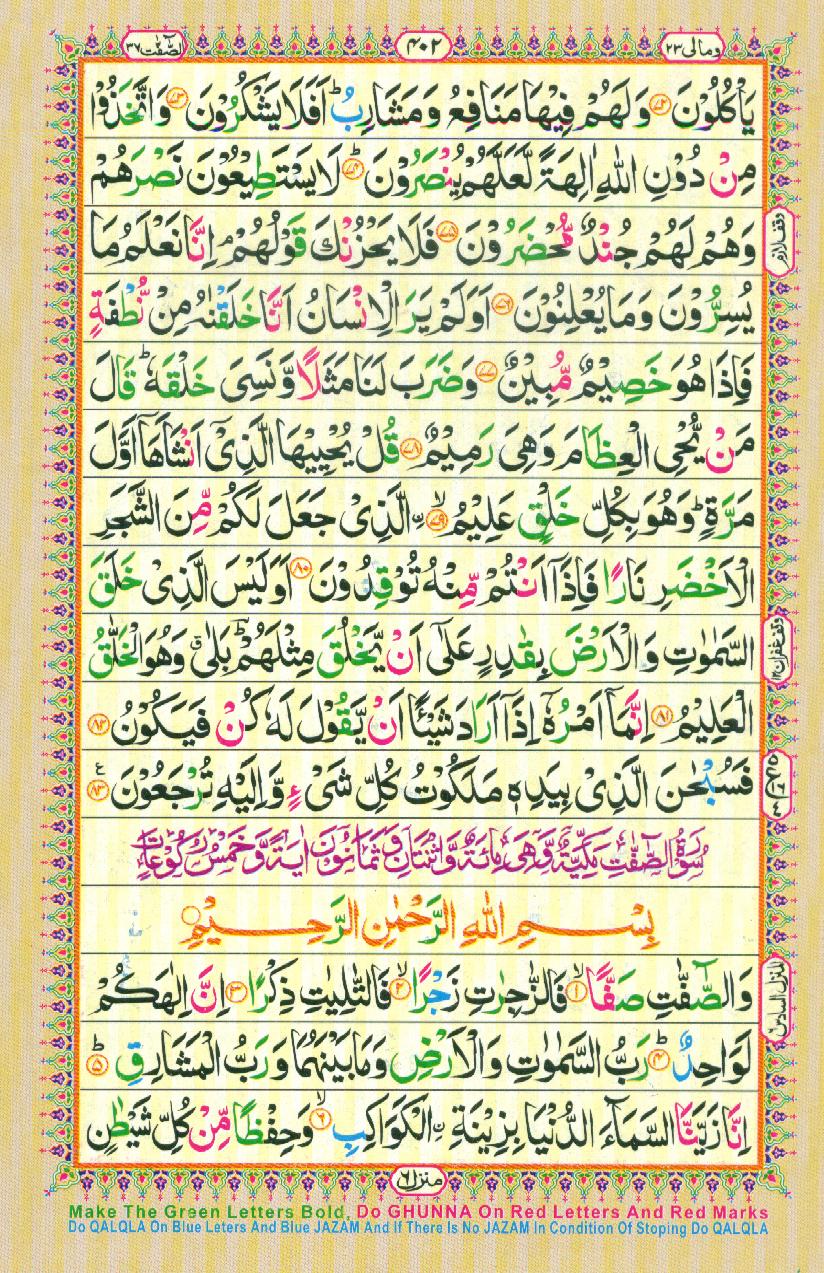 وما لی ٢٣
٤٠٢
الصّٰٓفّٰت ٣٧
یَاْكُلُوْنَ ﴿٧٢﴾ وَ لَهُمْ فِیْهَا مَنَافِعُ وَ مَشَارِبُ ؕ اَفَلَا یَشْكُرُوْنَ ﴿٧٣﴾ وَ اتَّخَذُوْا
مِنْ دُوْنِ اللّٰهِ اٰلِهَةً لَّعَلَّهُمْ یُنْصَرُوْنَ ؕ ﴿٧٤﴾ لَا یَسْتَطِیْعُوْنَ نَصْرَهُمْ
وَ هُمْ لَهُمْ جُنْدٌ مُّحْضَرُوْنَ ﴿٧٥﴾ فَلَا یَحْزُنْكَ قَوْلُهُمْ ۘ اِنَّا نَعْلَمُ مَا
وقف لازم
یُسِرُّوْنَ وَ مَا یُعْلِنُوْنَ ﴿٧٦﴾ اَوَ لَمْ یَرَ الْاِنْسَانُ اَنَّا خَلَقْنٰهُ مِنْ نُّطْفَةٍ
فَاِذَا هُوَ خَصِیْمٌ مُّبِیْنٌ ﴿٧٧﴾ وَ ضَرَبَ لَنَا مَثَلًا وَّ نَسِیَ خَلْقَهٗ ؕ قَالَ
مَنْ یُّحْیِ الْعِظَامَ وَ هِیَ رَمِیْمٌ ﴿٧٨﴾ قُلْ یُحْیِیْهَا الَّذِیْۤ اَنْشَاَهَاۤ اَوَّلَ
مَرَّةٍ ؕ وَ هُوَ بِكُلِّ خَلْقٍ عَلِیْمُ ۙ ﴿٧٩﴾ ۨالَّذِیْ جَعَلَ لَكُمْ مِّنَ الشَّجَرِ
الْاَخْضَرِ نَارًا فَاِذَاۤ اَنْتُمْ مِّنْهُ تُوْقِدُوْنَ ﴿٨٠﴾ اَوَ لَیْسَ الَّذِیْ خَلَقَ
السَّمٰوٰتِ وَ الْاَرْضَ بِقٰدِرٍ عَلٰۤی اَنْ یَّخْلُقَ مِثْلَهُمْ ؕ بَلٰی ۗ وَ هُوَ الْخَلّٰقُ
وقف غفران
الْعَلِیْمُ ﴿٨١﴾ اِنَّمَاۤ اَمْرُهٗۤ اِذَاۤ اَرَادَ شَیْـًٔا اَنْ یَّقُوْلَ لَهٗ كُنْ فَیَكُوْنُ ﴿٨٢﴾
فَسُبْحٰنَ الَّذِیْ بِیَدِهٖ مَلَكُوْتُ كُلِّ شَیْءٍ وَّ اِلَیْهِ تُرْجَعُوْنَ ﴿٨٣﴾ ع
سُوْرَةُ الصّٰٓفّٰتِ مَكِّیَّةٌ وَّ هِیَ مِائَةٌ وَّ اثْنَتَانِ وَ ثَمَانُوْنَ اٰیَةً وَّ خَمْسُ رُكُوْعَاتٍ
بِسْمِ اللّٰهِ الرَّحْمٰنِ الرَّحِیْمِ
وَ الصّٰٓفّٰتِ صَفًّا ۙ ﴿١﴾ فَالزّٰجِرٰتِ زَجْرًا ۙ ﴿٢﴾ فَالتّٰلِیٰتِ ذِكْرًا ۙ ﴿٣﴾ اِنَّ اِلٰهَكُمْ
المنزل السادس
لَوَاحِدٌ ؕ ﴿٤﴾ رَبُّ السَّمٰوٰتِ وَ الْاَرْضِ وَ مَا بَیْنَهُمَا وَ رَبُّ الْمَشَارِقِ ؕ ﴿٥﴾
اِنَّا زَیَّنَّا السَّمَآءَ الدُّنْیَا بِزِیْنَةِ ۨالْكَوَاكِبِ ۙ ﴿٦﴾ وَ حِفْظًا مِّنْ كُلِّ شَیْطٰنٍ
منزل ٦
Make The Green Letters Bold, Do GHUNNA On Red Letters And Red Marks
Do QALQLA On Blue Leters And Blue JAZAM And If There Is No JAZAM In Condition Of Stoping Do QALQLA